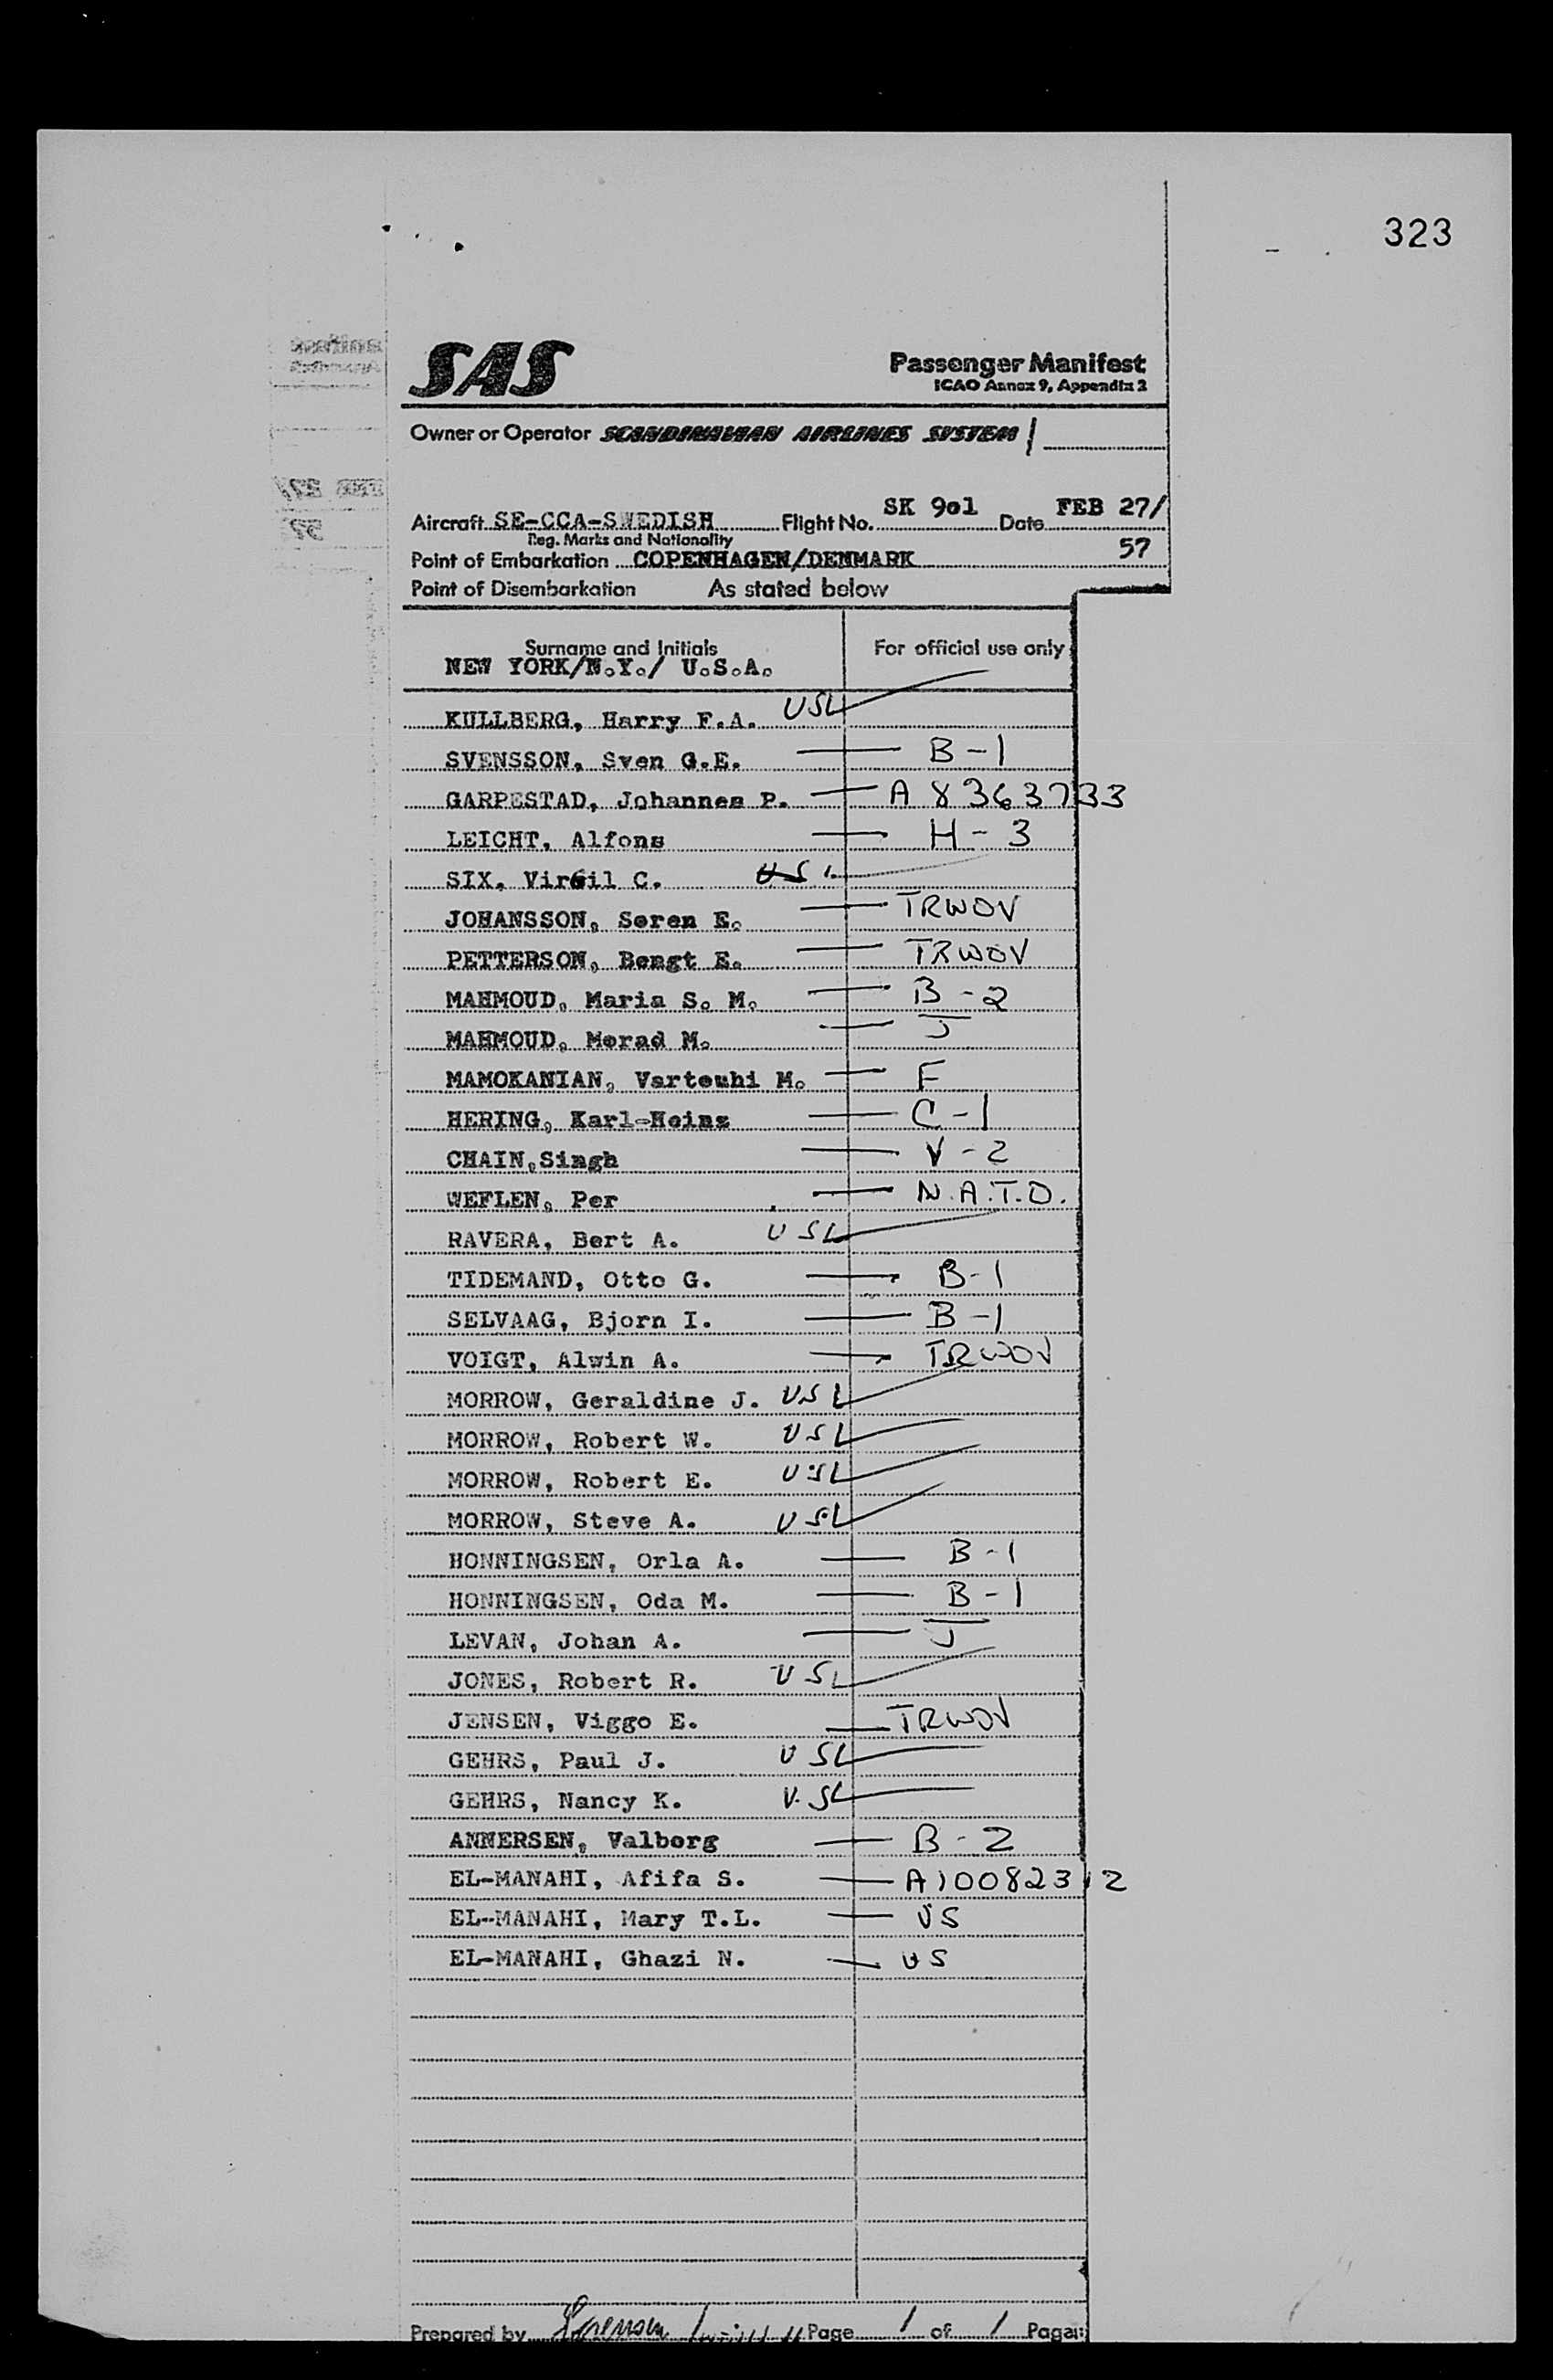 323
SAS
Passenger Manifest
ICAO Annex 9, Appendix 2
Owner or Operator SCANDINAVIAN AIRLINES SYSTEM
Aircraft SE-CCA-SWEDISH Flight No. SK 9o1 Date FEB 27/
Reg. Marks and Nationality
57
Point of Embarkation COPENHAGEN/DENMARK
Point of Disembarkation As stated below
Surname and Initials For official use only
NEW YORK/N.Y./ U.S.A.
KULLBERG, Harry F.A. USL
SVENSSON, Sven G.E. B-1
GARPESTAD, Johannes P. A 8363733
LEICHT, Alfons H-3
SIX, Virgil C. US
JOHANSSON, Soren E. TRWOV
PETTERSON, Bengt E. TRWOV
MAHMOUD, Maria S. M. B-2
MAHMOUD, Morad M. J
MAMOKANIAN, Vartouhi M. F
HERING, Karl-Heinz C-1
CHAIN, Singh V-2
WEFLEN, Per N.A.T.O.
RAVERA, Bert A. USL
TIDEMAND, Otto G. B-1
SELVAAG, Bjorn I. B-1
VOIGT, Alwin A. TRWOV
MORROW, Geraldine J. USL
MORROW, Robert W. USL
MORROW, Robert E. USL
MORROW, Steve A. USL
HONNINGSEN, Orla A. B-1
HONNINGSEN, Oda M. B-1
LEVAN, Johan A. J
JONES, Robert R. USL
JENSEN, Viggo E. TRWOV
GEHRS, Paul J. USL
GEHRS, Nancy K. USL
ANNERSEN, Valborg B-2
EL-MANAHI, Afifa S. A10082312
EL-MANAHI, Mary T.L. US
EL-MANAHI, Ghazi N. US
Prepared by Page 1 of 1 Pages